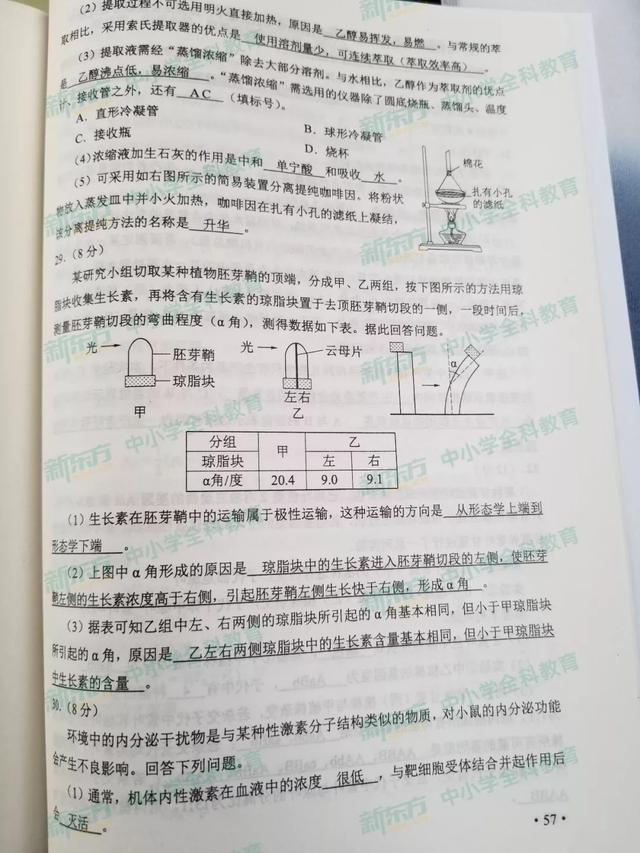 (2) 提取过程不可选用明火直接加热，原因是 乙醇易挥发，易燃 。与常规的萃
取相比，采用索氏提取器的优点是 使用溶剂量少，可连续萃取（萃取效率高） 。
(3) 提取液需经“蒸馏浓缩”除去大部分溶剂。与水相比，乙醇作为萃取剂的优点
是 乙醇沸点低，易浓缩 。“蒸馏浓缩”需选用的仪器除了圆底烧瓶、蒸馏头、温度
计、接收管之外，还有 AC （填标号）。
A. 直形冷凝管
B. 球形冷凝管
C. 接收瓶
D. 烧杯
(4) 浓缩液加生石灰的作用是中和 单宁酸 和吸收 水 。
(5) 可采用如右图所示的简易装置分离提纯咖啡因。将粉状
物放入蒸发皿中并小火加热，咖啡因在扎有小孔的滤纸上凝结，
该分离提纯方法的名称是 升华 。
棉花
扎有小孔
的滤纸
29.（8分）
某研究小组切取某种植物胚芽鞘的顶端，分成甲、乙两组，按下图所示的方法用琼
脂块收集生长素，再将含有生长素的琼脂块置于去顶胚芽鞘切段的一侧，一段时间后，
测量胚芽鞘切段的弯曲程度（α角），测得数据如下表。据此回答问题。
光 胚芽鞘 琼脂块 甲
光 云母片 左右 乙
α
分组 甲 乙
琼脂块 左 右
α角/度 20.4 9.0 9.1
(1) 生长素在胚芽鞘中的运输属于极性运输，这种运输的方向是 从形态学上端到
形态学下端 。
(2) 上图中α角形成的原因是 琼脂块中的生长素进入胚芽鞘切段的左侧，使胚芽
鞘左侧的生长素浓度高于右侧，引起胚芽鞘左侧生长快于右侧，形成α角 。
(3) 据表可知乙组中左、右两侧的琼脂块所引起的α角基本相同，但小于甲琼脂块
所引起的α角，原因是 乙左右两侧琼脂块中的生长素含量基本相同，但小于甲琼脂块
中生长素的含量 。
30.（8分）
环境中的内分泌干扰物是与某种性激素分子结构类似的物质，对小鼠的内分泌功能
会产生不良影响。回答下列问题。
(1) 通常，机体内性激素在血液中的浓度 很低 ，与靶细胞受体结合并起作用后
会 灭活 。
·57·
新东方 中小学全科教育